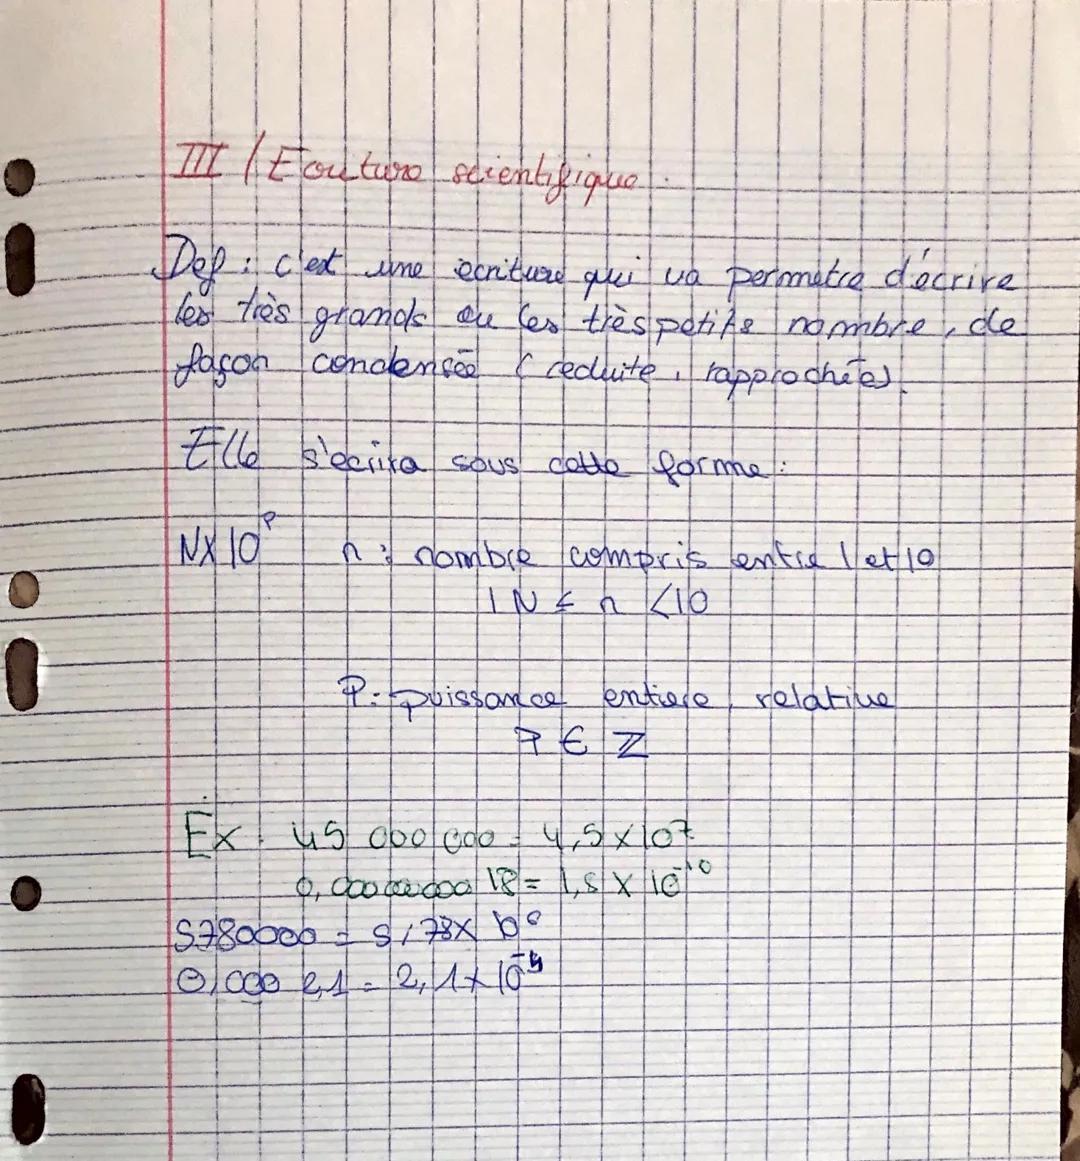 III / Ecriture scientifique.
Def : c'est une ecriture qui va permetre d'écrire
les très grands ou les très petits nombre, de
façon condensée (reduite, rapprochée).
Elle s'ecrira sous cette forme :
N×10^P n : nombre compris entre 1 et 10
1 N ≤ n <10
P : puissance entiere, relative
P ∈ ℤ
Ex : 45 000 000 = 4,5 × 10^7
18 = 1,8 × 10^-10
5780000 = 5,78×
0,000 2,1 = 2,1 × 10